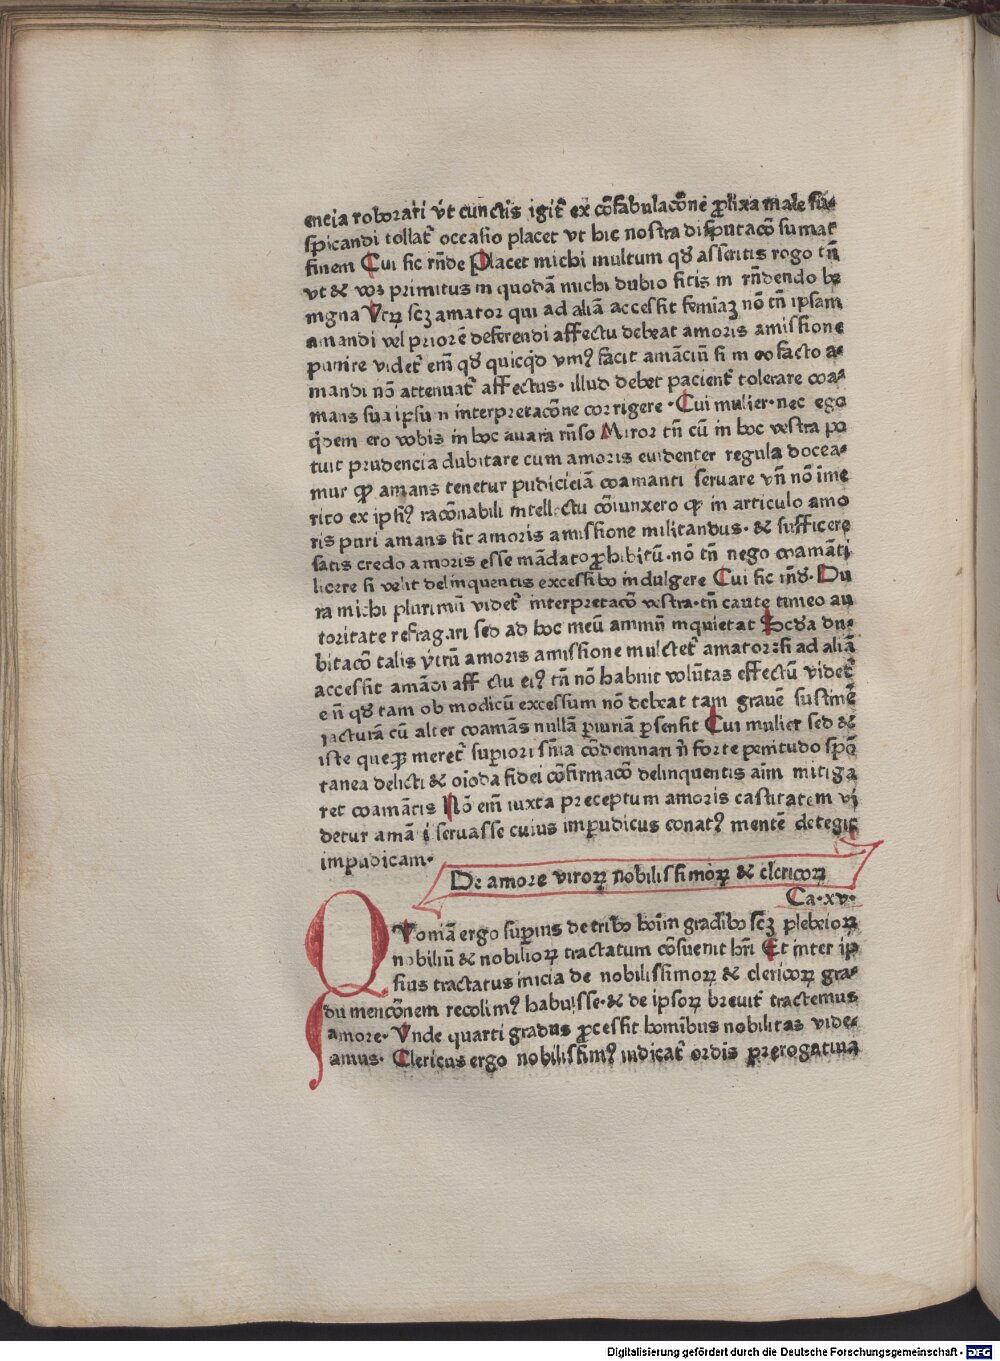 encia roborari vt cunctis igit̃ ex cõfabulacõne ꝓlixa male su⸗
spicandi tollat̃ occasio placet vt hic nostra disputacõ sumat
finem Cui sic rñde Placet michi multum qđ asseritis rogo tñ
vt & voꝫ primitus in quodã michi dubio sitis in rñdendo be
nigna Vtꝝ scꝫ amator qui ad aliã accessit femiaꝫ nõ tñ ipsam
amandi vel priorẽ deserendi affectu debeat amoris amissione
punire videt̃ em̃ qđ quicq̇d vnꝰ facit amãciũ si in eo facto a⸗
mandi nõ attenuat̃ affectus· illud debet pacient̃ tolerare coa⸗
mans sua ipsum interpretacõne corrigere · Cui mulier· nec ego
q̇dem ero vobis in hoc auara rñso Miror tñ cũ in hoc vestra po
tuit prudencia dubitare cum amoris euidenter regula docea⸗
mur ꝙ amans tenetur pudiciciã coamanti seruare vñ nõ ime
rito ex ipsiꝰ racõnabili intellectu cõiunxero ꝙ in articulo amo
ris puri amans sit amoris amissione militandus· & sufficere
satis credo amoris esse mãdato ꝓhibitũ· nõ tñ nego coamãti
licere si velit delinquentis excessibo indulgere Cui sic inđ· Du
ra michi plurimũ videt̃ interpretacõ vestra· tñ caute timeo au
toritate refragari sed ad hoc meũ animũ inquietat Scđa du⸗
bitacõ talis vtrũ amoris amissione mulctet̃ amator si ad aliã
accessit amãdi affectu eiꝰ tñ nõ habuit volũtas effectũ videt̃
eñ qđ tam ob modicũ excessum nõ debeat tam grauẽ sustinẽ
iacturã cũ alter coamãs nullã ꝑiuriã ꝑsensit Cui mulier sed &
iste queꝗ meret̃ superiori sñia cõdemnari ñ forte penitudo spõ
tanea delicti & oĩoda fidei cõfirmacõ delinquentis aim mitiga
ret coamãtis Nõ em̃ iuxta preceptum amoris castitatem vi
detur amãti seruasse cuius impudicus conatꝰ mentẽ detegit
impudicam·
De amore viroꝝ nobilissimoꝝ & clericoꝝ
Ca·xv·
QVoniã ergo supius de tribo hoĩm gradibo scꝫ plebeioꝝ
nobiliũ & nobilioꝝ tractatum cõsuenit hr̃i Et inter ip
sius tractatus inicia de nobilissimoꝝ & clericoꝝ gra⸗
du mencõnem recolimꝰ habuisse· & de ipsoꝝ breuit̃ tractemus
amore· Vnde quarti gradus ꝓcessit homĩbus nobilitas vide⸗
amus· Clericus ergo nobilissimꝰ iudicat̃ ordis prerogatiua
Digitalisierung gefördert durch die Deutsche Forschungsgemeinschaft - DFG